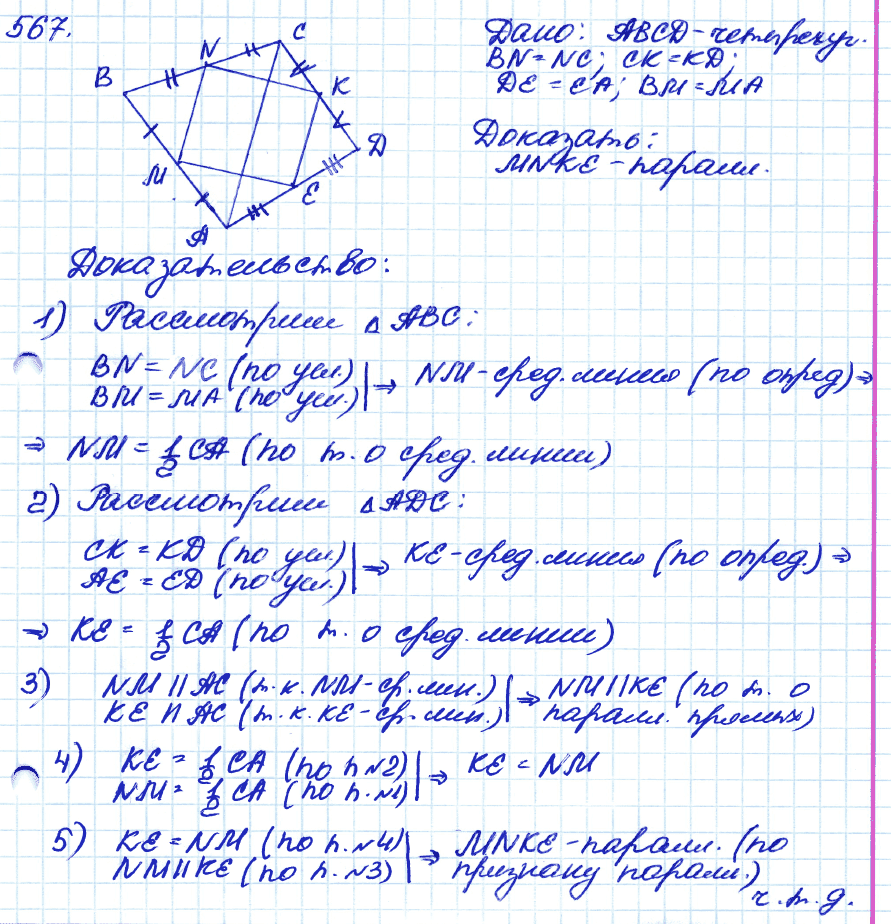 567.
Дано: ABCD - четырехуг.
BN = NC; CK = KD;
DE = EA; BM = MA
Доказать:
MNKE - паралл.
B N C K D E A M
Доказательство:
1) Рассмотрим △ ABC:
BN = NC (по усл.)
BM = MA (по усл.) | ⇒ NM - сред. линия (по опред) ⇒
⇒ NM = 1/2 CA (по т. о сред. линии)
2) Рассмотрим △ ADC:
CK = KD (по усл.)
AE = ED (по усл.) | ⇒ KE - сред. линия (по опред.) ⇒
⇒ KE = 1/2 CA (по т. о сред. линии)
3) NM || AC (т.к. NM - ср. лин.) | ⇒ NM || KE (по т. о
KE || AC (т.к. KE - ср. лин.) паралл. прямых)
4) KE = 1/2 CA (по п №2) | ⇒ KE = NM
NM = 1/2 CA (по п. №1)
5) KE = NM (по п. №4) | ⇒ MNKE - паралл. (по
NM || KE (по п. №3) признаку паралл.)
ч. т. д.